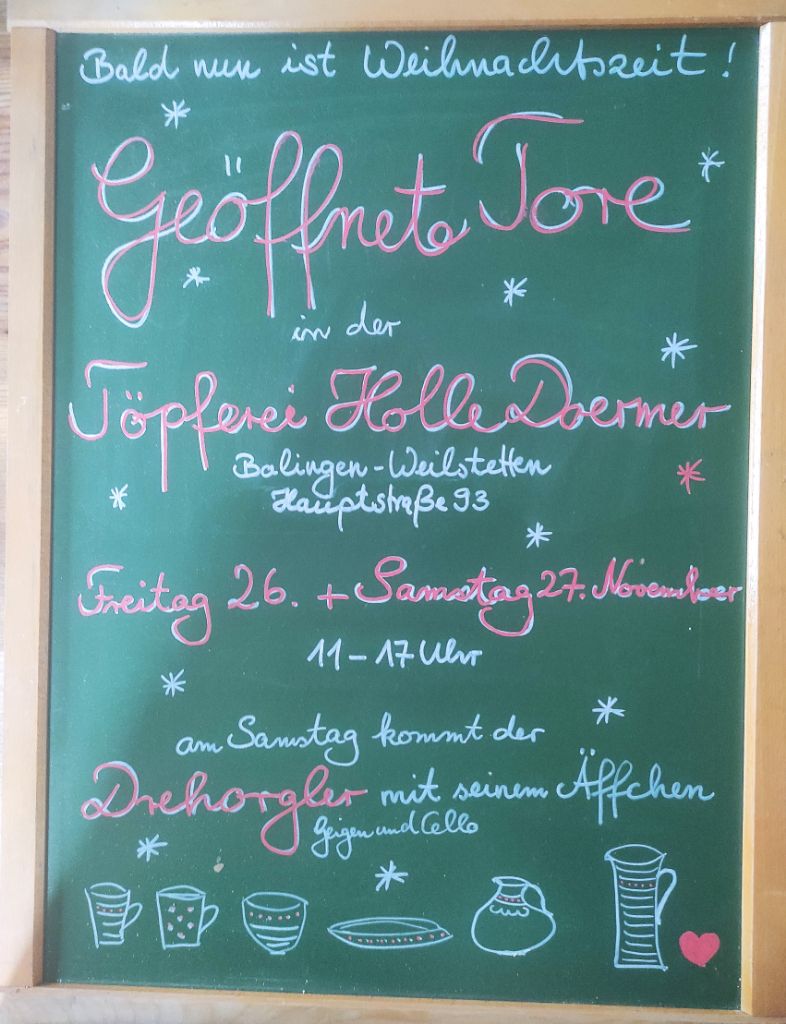 Bald nun ist Weihnachtszeit!
Geöffnete Tore
in der
Töpferei Holle Doermer
Balingen-Weilstetten
Hauptstraße 93
Freitag 26. + Samstag 27. November
11-17 Uhr
am Samstag kommt der
Drehorgler mit seinem Äffchen
Geigen und Cello